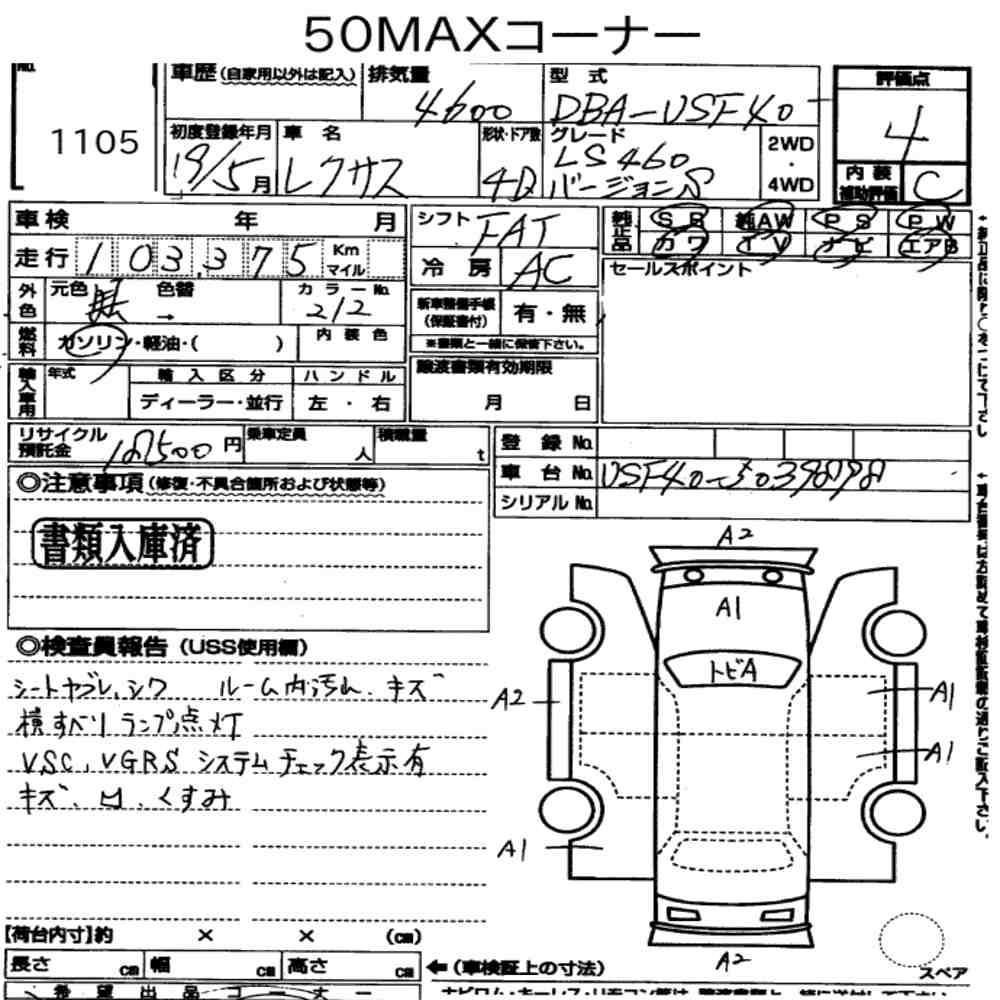 50MAXコーナー
No.
1105
車歴 (自家用以外は記入)
排気量
4600
型式
DBA-USF40
評価点
4
初度登録年月
19/5月
車名
レクサス
形状・ドア数
4D
グレード
LS460
バージョンS
2WD
・
4WD
内装
補助評価
C
車検 年 月
シフト
FAT
純正品
SR 純AW PS PW
カワ TV ナビ エアB
走行 103,375 Km
マイル
冷房
AC
セールスポイント
外色
元色 黒 色替 →
カラーNo.
212
新車整備手帳
(保証書付)
有・無
※書類と一緒に保管下さい。
燃料
ガソリン・軽油・( )
内装色
輸入車用
年式
輸入区分
ハンドル
ディーラー・並行
左・右
譲渡書類有効期限
月 日
リサイクル
預託金
円
乗車定員
人
積載量
t
登録 No.
車台 No.
シリアル No.
◎注意事項 (修復・不具合箇所および状態等)
書類入庫済
◎検査員報告 (USS使用欄)
シートヤブレ、シワ ルーム内汚れ、キズ
横すべりランプ点灯
VSC、VGRS システムチェック表示有
キズ、凹、くすみ
A2
A1
トビA
A2
A1
A1
A1
A2
スペア
【荷台内寸】約 × × (cm)
長さ cm 幅 cm 高さ cm
← (車検証上の寸法)
希望出品コーナー